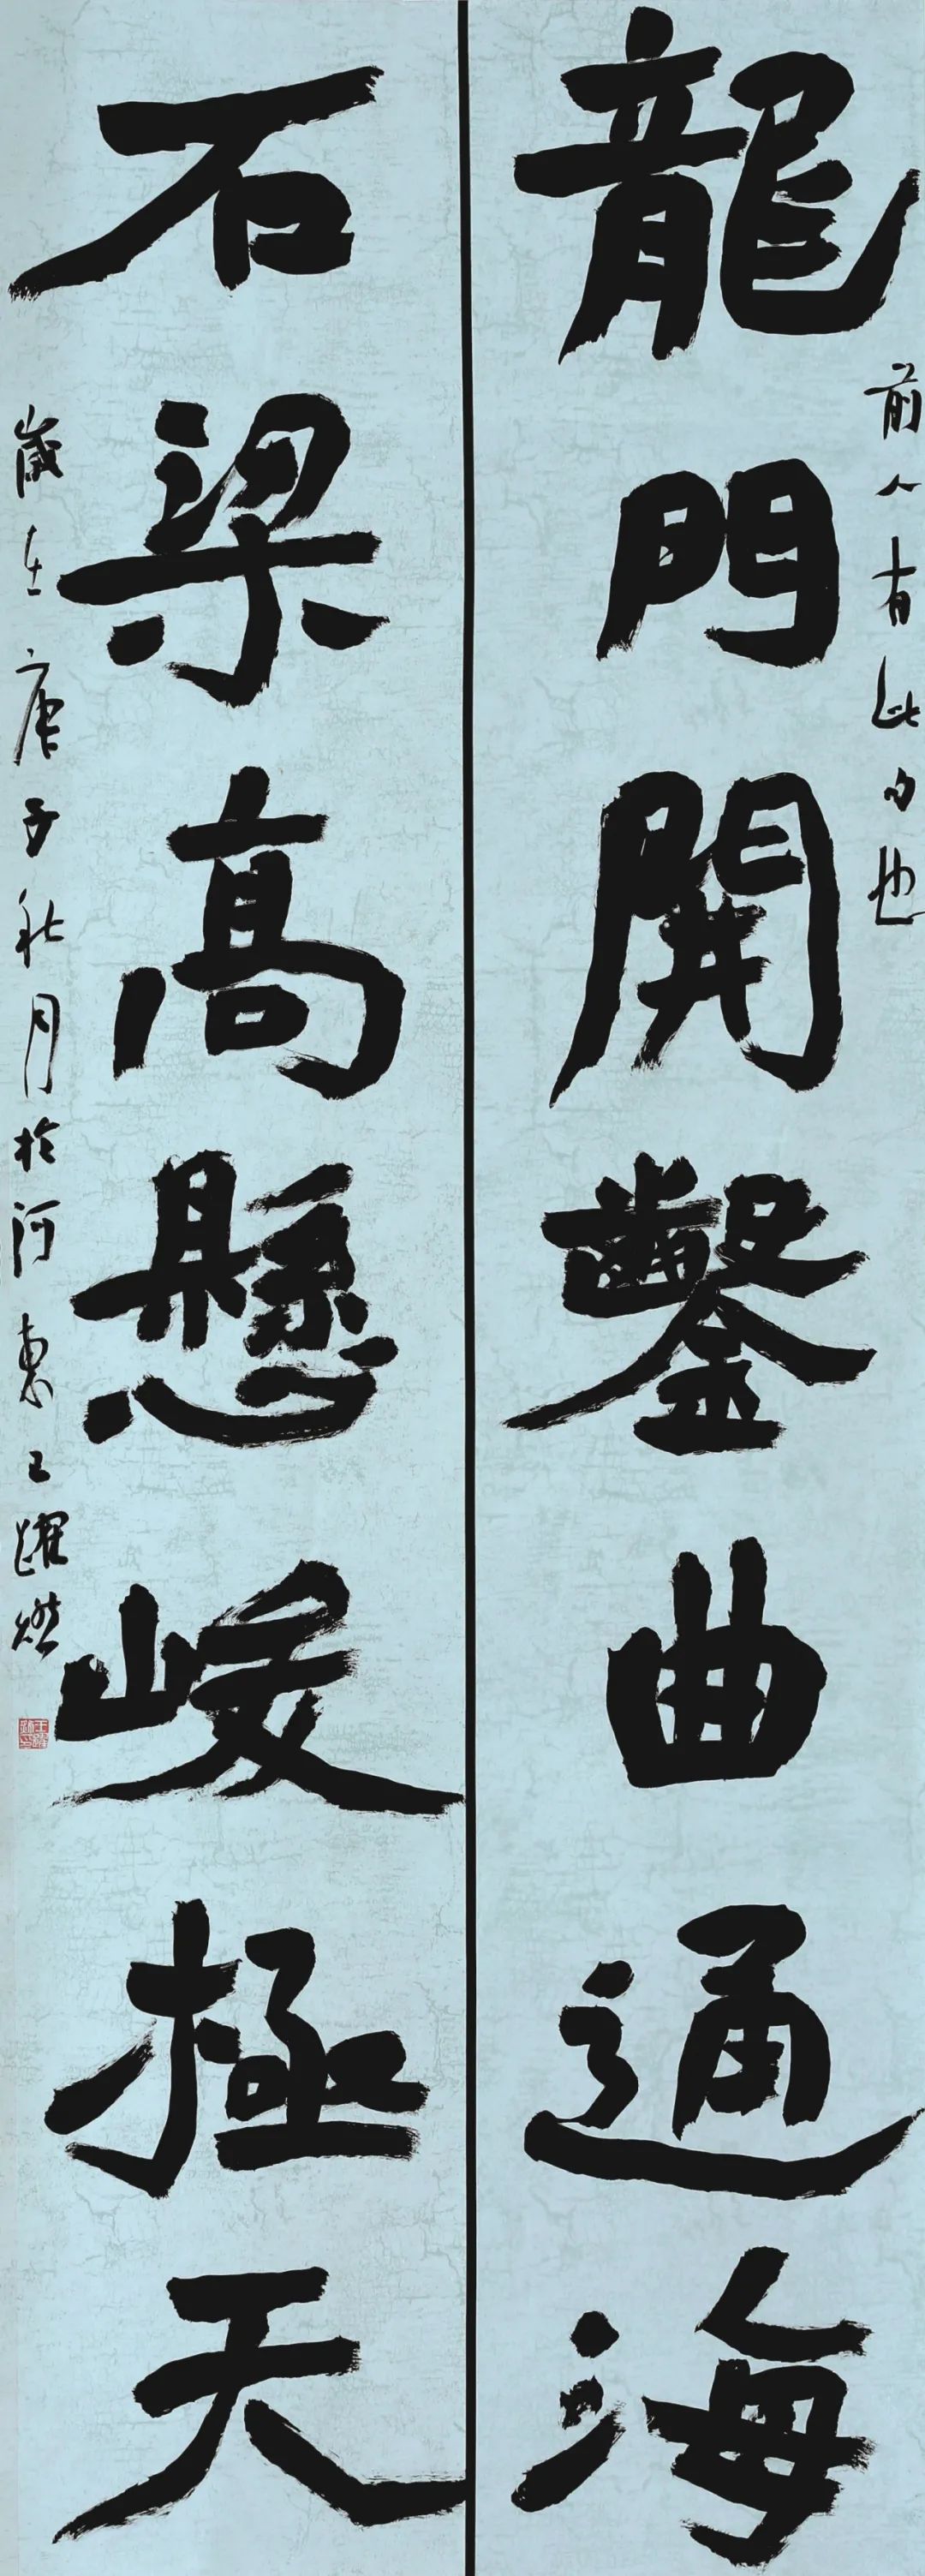 龍門開鑿曲通海
前人有此句也
石梁高懸峻極天
歲在庚子秋月於河東王躍燃